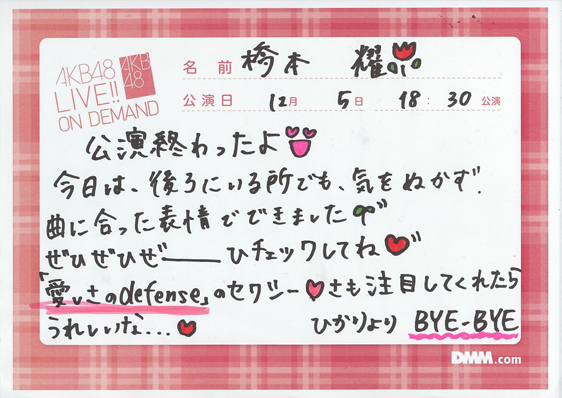 AKB48
LIVE!!
ON DEMAND
AKB
48
名前 橋本 耀
公演日 12月 5日 18:30 公演
公演終わったよ
今日は、後ろにいる所でも、気をぬかず、
曲に合った表情でできました
ぜひぜひぜ――ひチェックしてね
「愛しさのdefense」のセクシーさも注目してくれたら
うれしいな...
ひかりより BYE-BYE
DMM.com